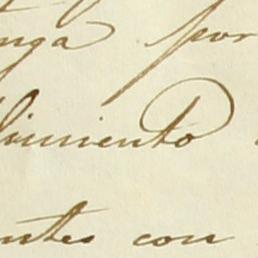 enga por
limiento
ntes con